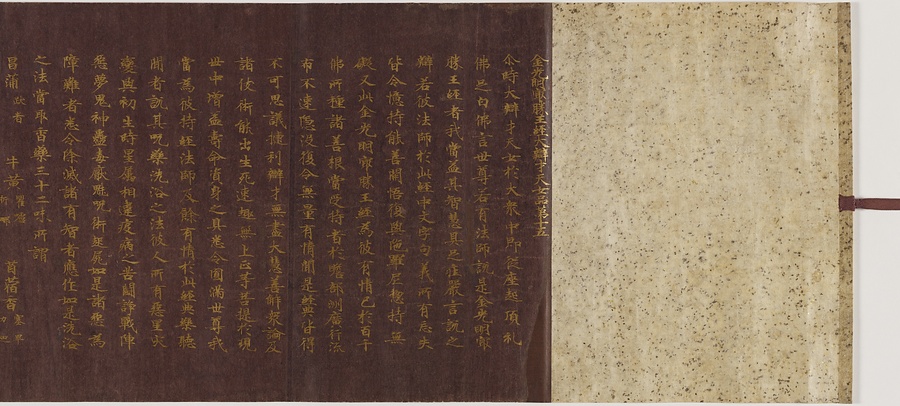 金光明冣勝王經大辯才天女品第十五
尒時大辯才天女於大衆中即從座起頂礼
佛足白佛言世尊若有法師說是金光明冣
勝王經者我當益其智慧具足莊嚴言說之
辯若彼法師於此經中文字句義所有忘失
皆令憶持能善開悟復與陁羅尼揔持無
礙又此金光明冣勝王經為彼有情已於百千
佛所種諸善根常受持者於贍部洲廣行流
布不速隱沒復令無量有情聞是經典皆得
不可思議捷利辯才無盡大慧善解衆論及
諸伎術能出生死速趣無上正等菩提於現
世中增益壽命資身之具悉令圓滿世尊我
當為彼持經法師及餘有情於此經典樂聽
聞者說其呪藥洗浴之法彼人所有惡星灾
變與初生時星屬相違疫病之苦鬪諍戰陣
惡夢鬼神蠱毒厭魅呪術起屍如是諸惡為
障難者悉令除滅諸有智者應作如是洗浴
之法當取香藥三十二味所謂
昌蒲 跋者 牛黃 苜蓿香